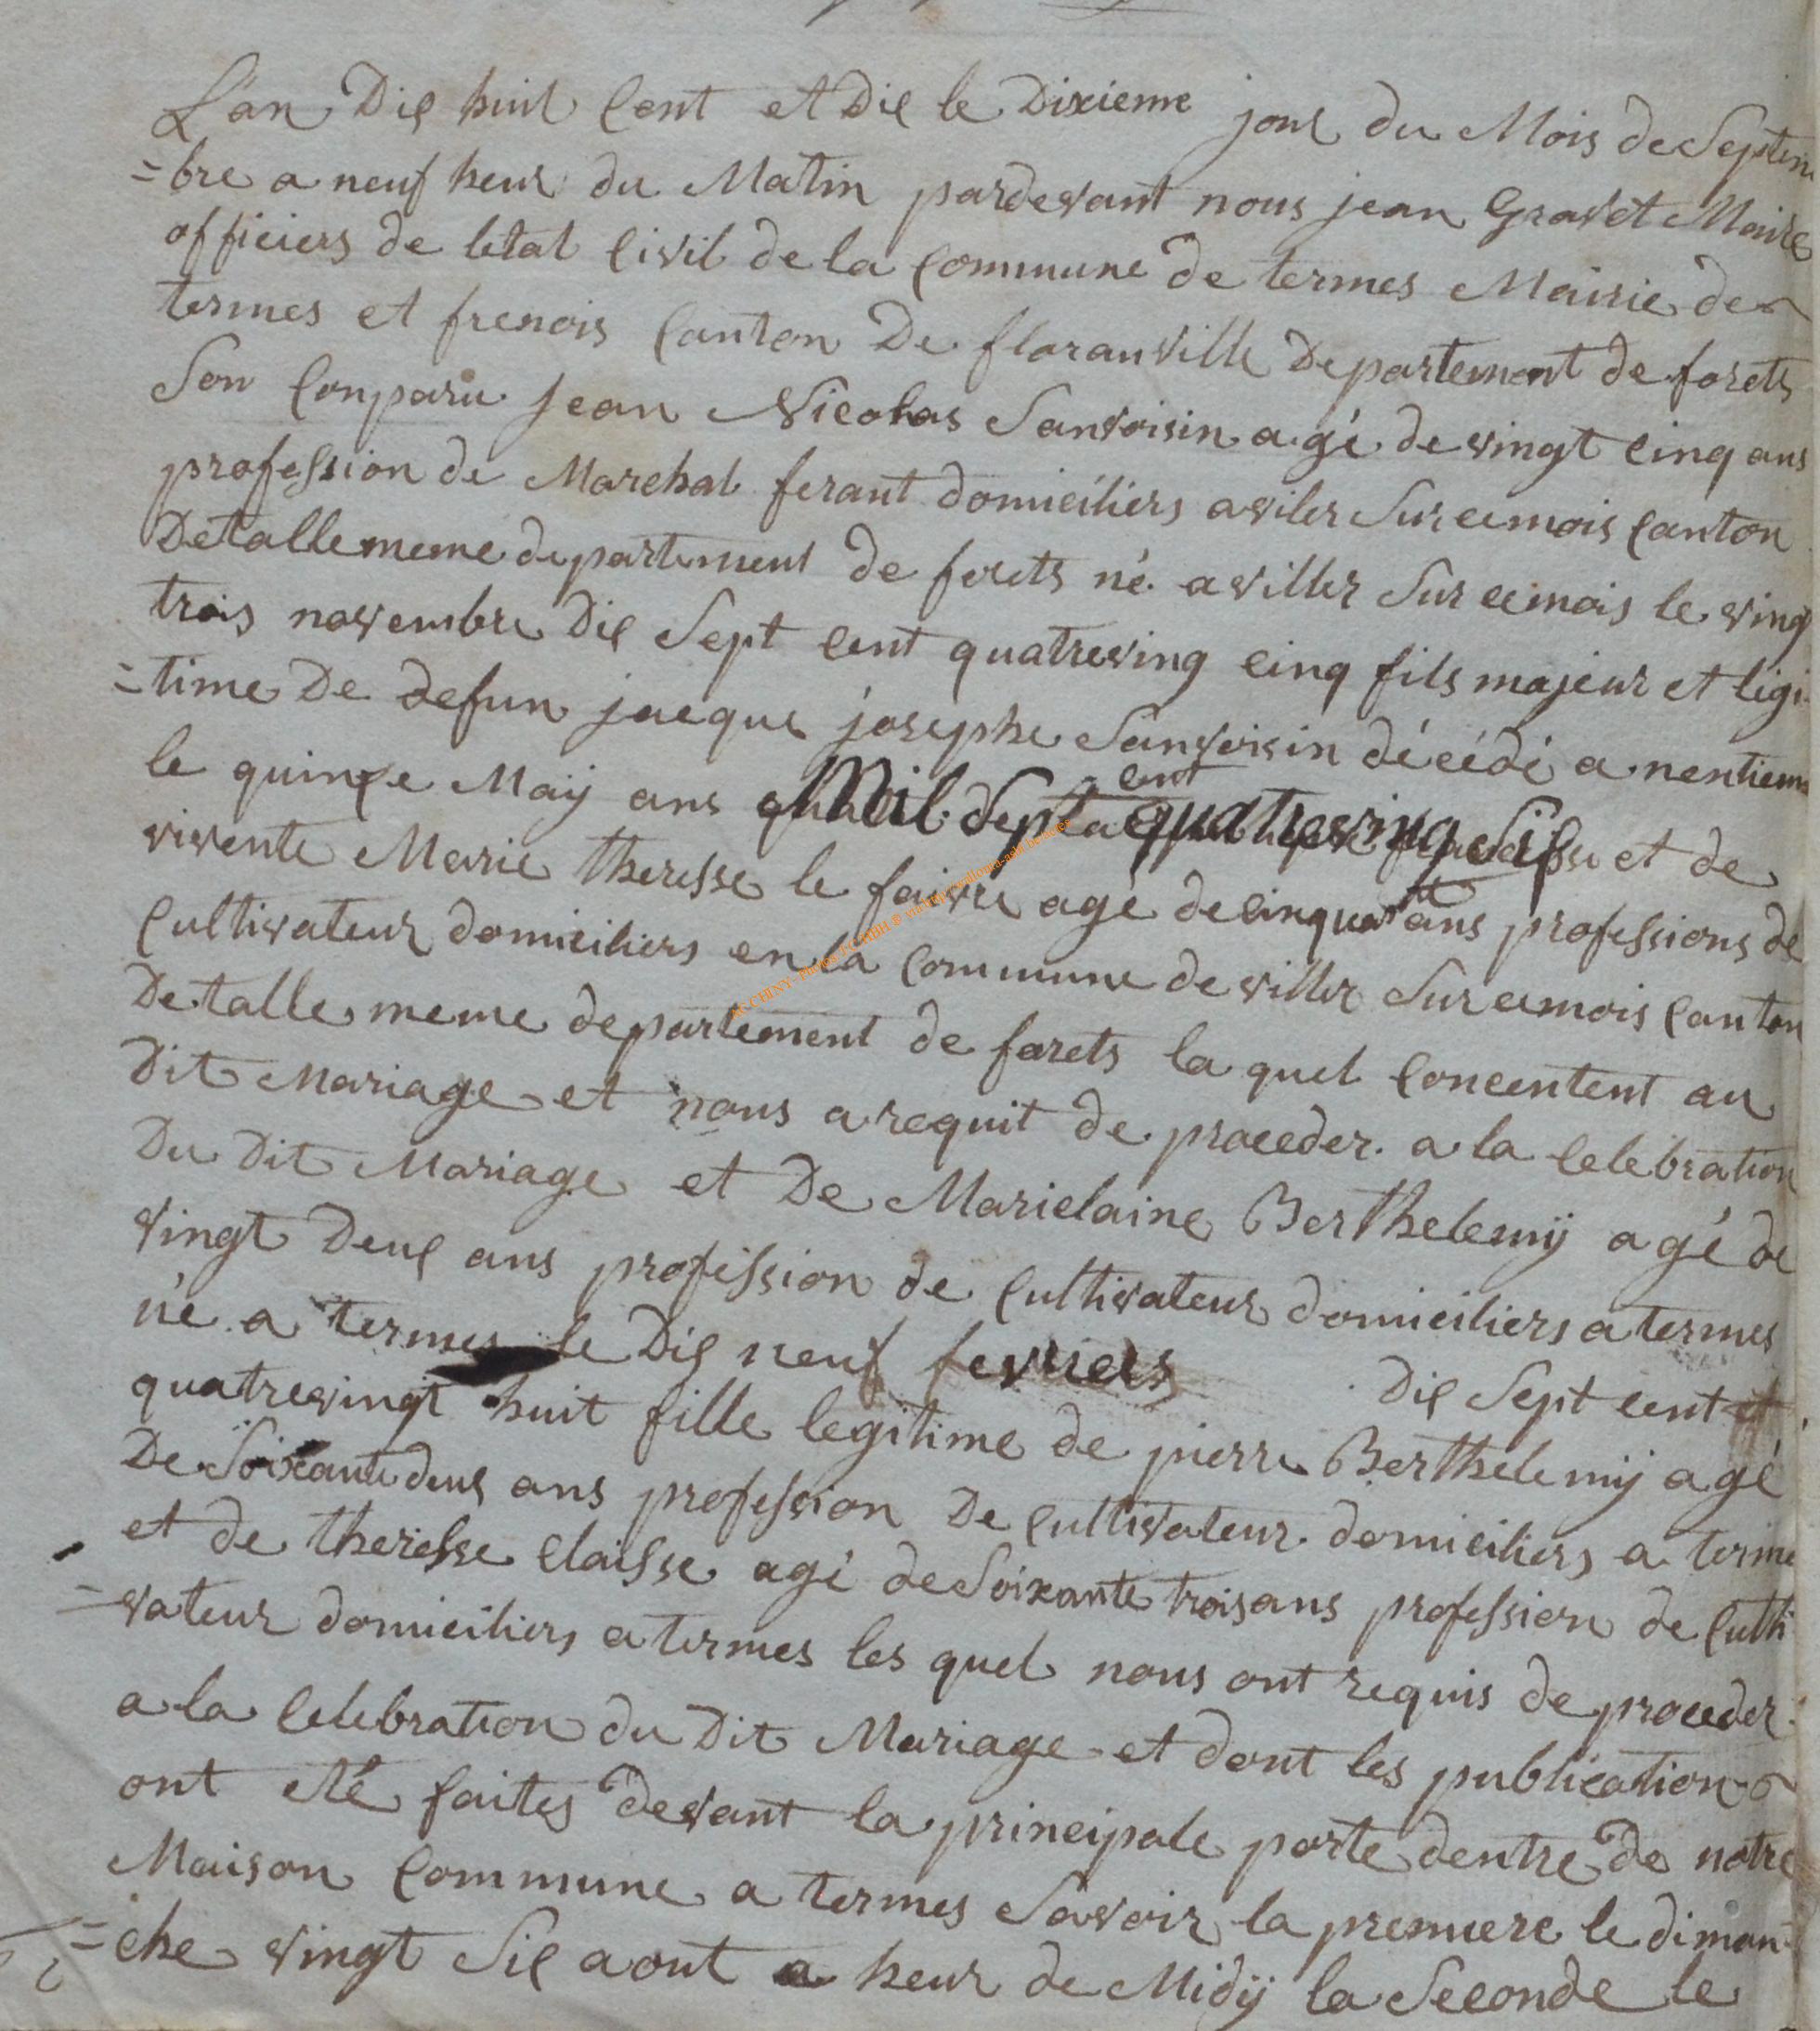 L'an Dix huit Cent et Dix le Dixieme jour du Mois de Septem
=bre a neuf heur du Matin pardevant nous jean Gravet Maire
officiers de letat Civil de la Commune de termes Mairie de
termes et frenois Canton De floranville Departement de forets
Son Conparu jean Nicolas Sanvoisin agé de vingt cinq ans
profession de Marchal ferant domiciliers a viler Sur cemois Canton
Detalle meme departement de forets né a viller Sur cemois le ving
trois novembre Dix Sept cent quatreving cinq fils majeur et légi
=time De defun jacque josephe Sanvoisin décédé a nentiem
le quinze Maÿ ans Mil Sept cent quatreving Six et de
vivente Marie theresse le faivre agé de cinquant ans professions de
Cultivateur domiciliers en la Commune de viller Sur cemois Canton
Detalle meme departement de forets la quel Concentent au
Dit Mariage et nous a requit de proceder a la Celebration
Du Dit Mariage et De Marielaine Berthelemÿ agé de
vingt Deux ans profession de Cultivateur domiciliers a termes
né a termes le Dix neuf fevriers Dix Sept cent et
quatrevingt huit fille legitime de pierre Berthelemÿ agé
De Soixante deux ans profession De Cultivateur domiciliers a terme
et de theresse Claisse agé de Soixante trois ans profession de Culti
=vateur domiciliers a termes les quel nous ont requis de proceder
a la Celebration du Dit Mariage et dont les publication
ont eté faites devant la principale porte dentre de notre
Maison Commune a termes Savoir la premiere le diman
=che vingt Six aout a heur de Midÿ la Seconde le